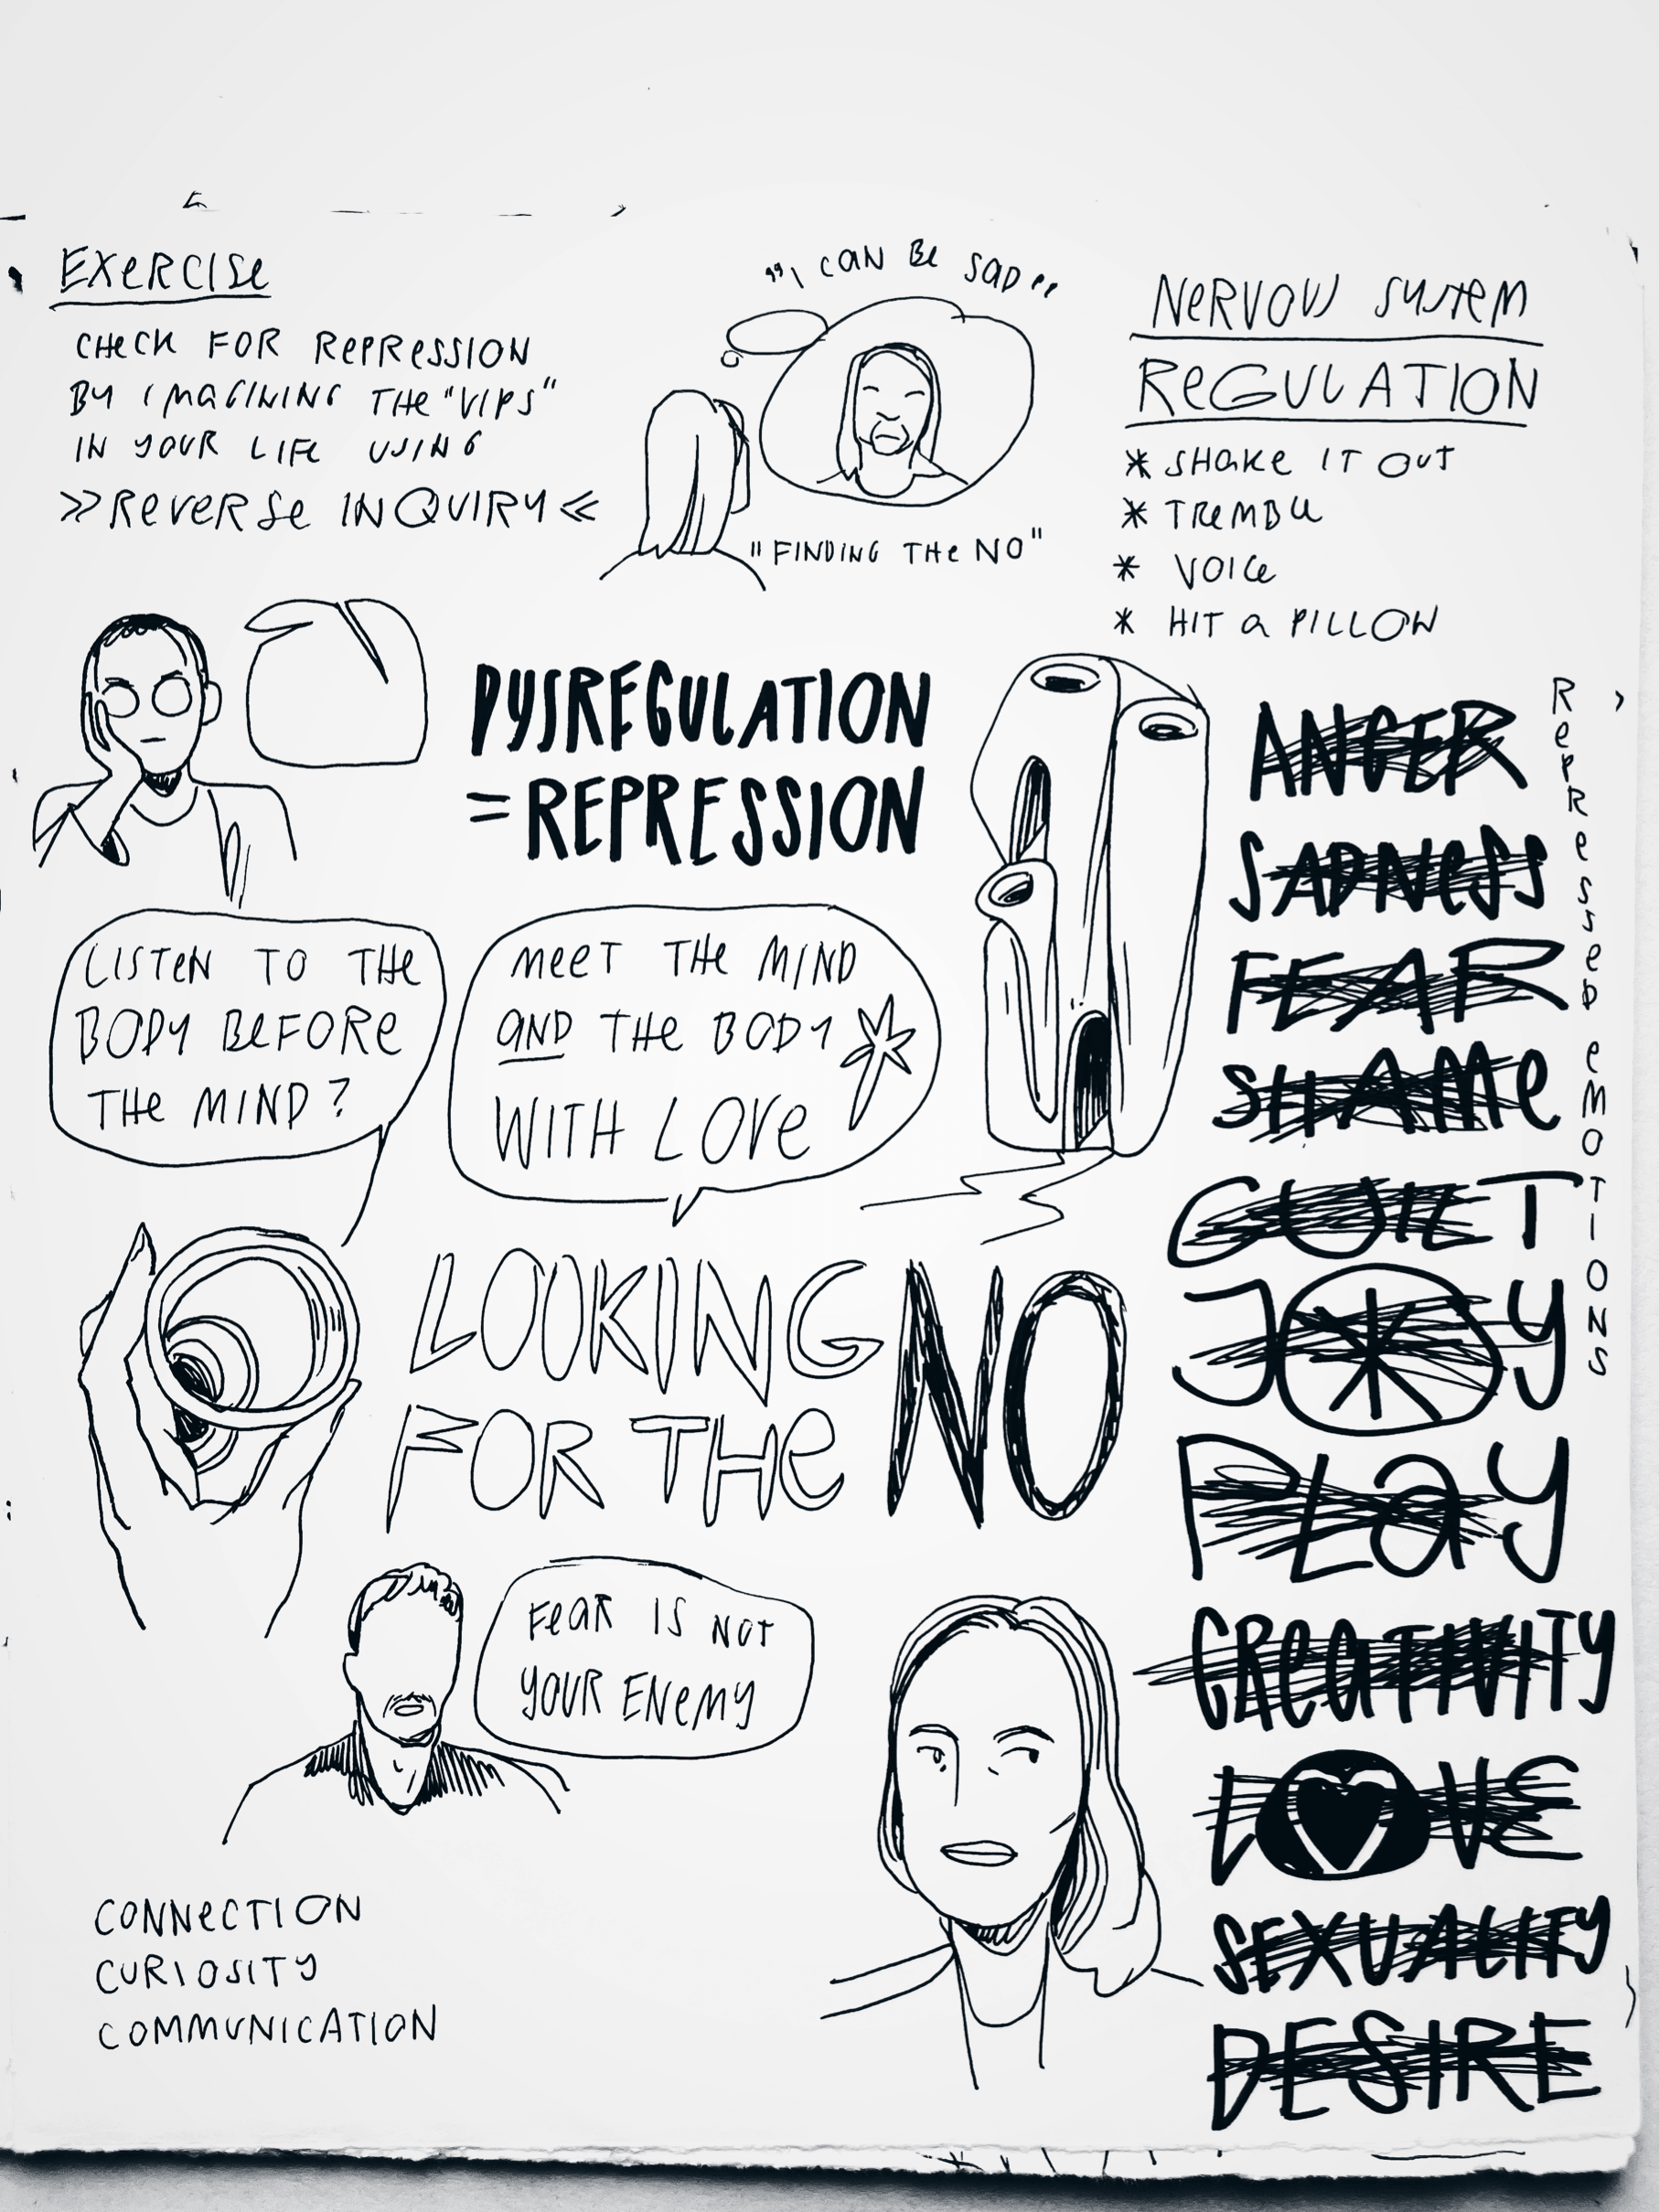 EXERCISE
CHECK FOR REPRESSION
BY IMAGINING THE "VIPS"
IN YOUR LIFE USING
>>REVERSE INQUIRY<<
"I CAN BE SAD"
"FINDING THE NO"
NERVOUS SYSTEM
REGULATION
* SHAKE IT OUT
* TREMBLE
* VOICE
* HIT A PILLOW
DYSREGULATION
=REPRESSION
LISTEN TO THE
BODY BEFORE
THE MIND?
MEET THE MIND
AND THE BODY
WITH LOVE
LOOKING
FOR THE NO
FEAR IS NOT
YOUR ENEMY
CONNECTION
CURIOSITY
COMMUNICATION
REPRESSED EMOTIONS
ANGER
SADNESS
FEAR
SHAME
GUILT
JOY
PLAY
CREATIVITY
LOVE
SEXUALITY
DESIRE